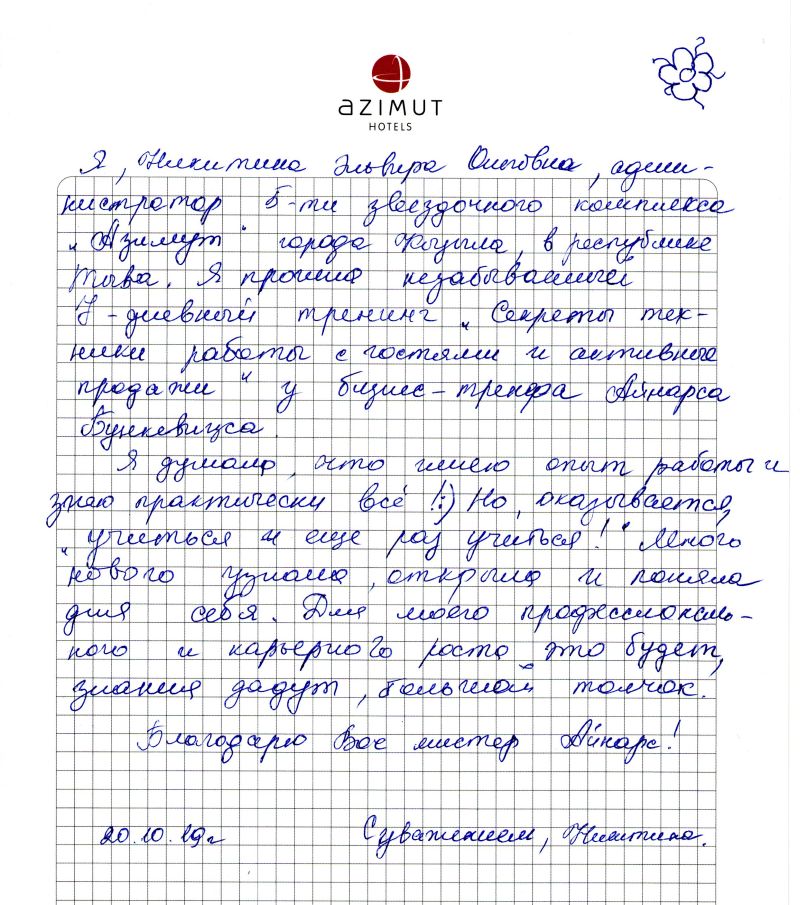 AZIMUT
HOTELS
Я, Никитина Эльвира Олеговна, адми-
нистратор 5-ти звездочного комплекса
„Азимут" города Кызыла, в республике
Тыва. Я прошла незабываемый
7-дневный тренинг „Секреты тех-
ники работы с гостями и активные
продажи" у бизнес-тренера Айнарса
Бункевицса.
Я думала, что имею опыт работы и
знаю практически всё!:) Но, оказывается,
„учиться и еще раз учиться!" Много
нового узнала, открыла и поняла
для себя. Для моего профессиональ-
ного и карьерного роста это будет,
знания дадут, большой толчок.
Благодарю Вас мистер Айнарс!
20.10.19г
С уважением, Никитина.